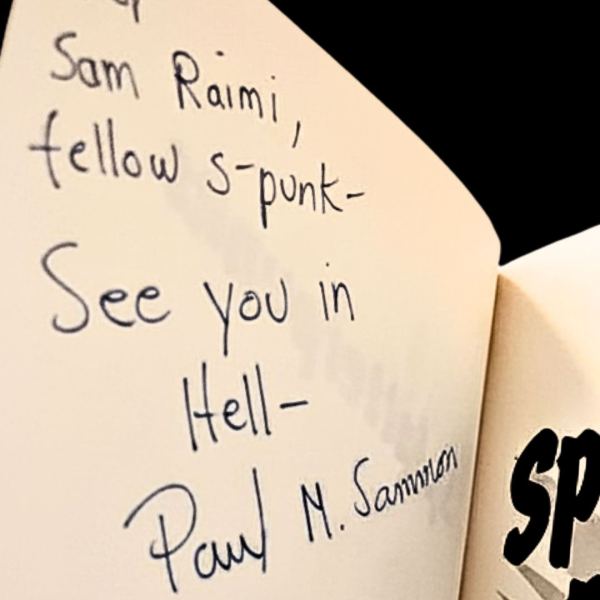 Sam Raimi,
fellow s-punk-
See you in
Hell-
Paul M. Sammon
SP